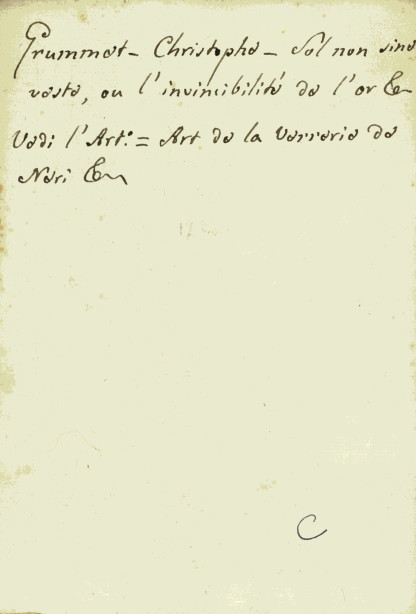 Grummet – Christophe – Sol non sine
veste, ou l'invincibilité de l'or &c
Vedi l'Art.º = Art de la Verrerie de
Neri &c
C